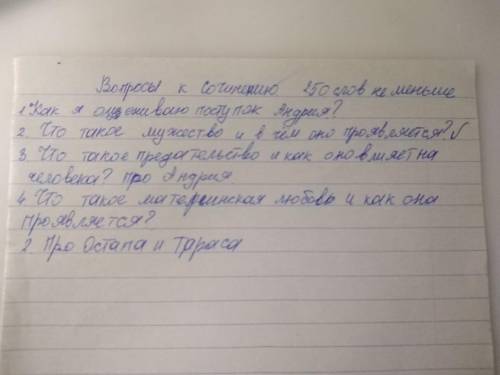 Вопросы к сочинению 250 слов не меньше
1. Как я оцениваю поступок Андрея?
2. Что такое мужество и в чём оно проявляется? √
3. Что такое предательство и как оно влияет на
человека? про Андрия.
4. Что такое материнская любовь и как она
проявляется?
2. Про Остапа и Тараса